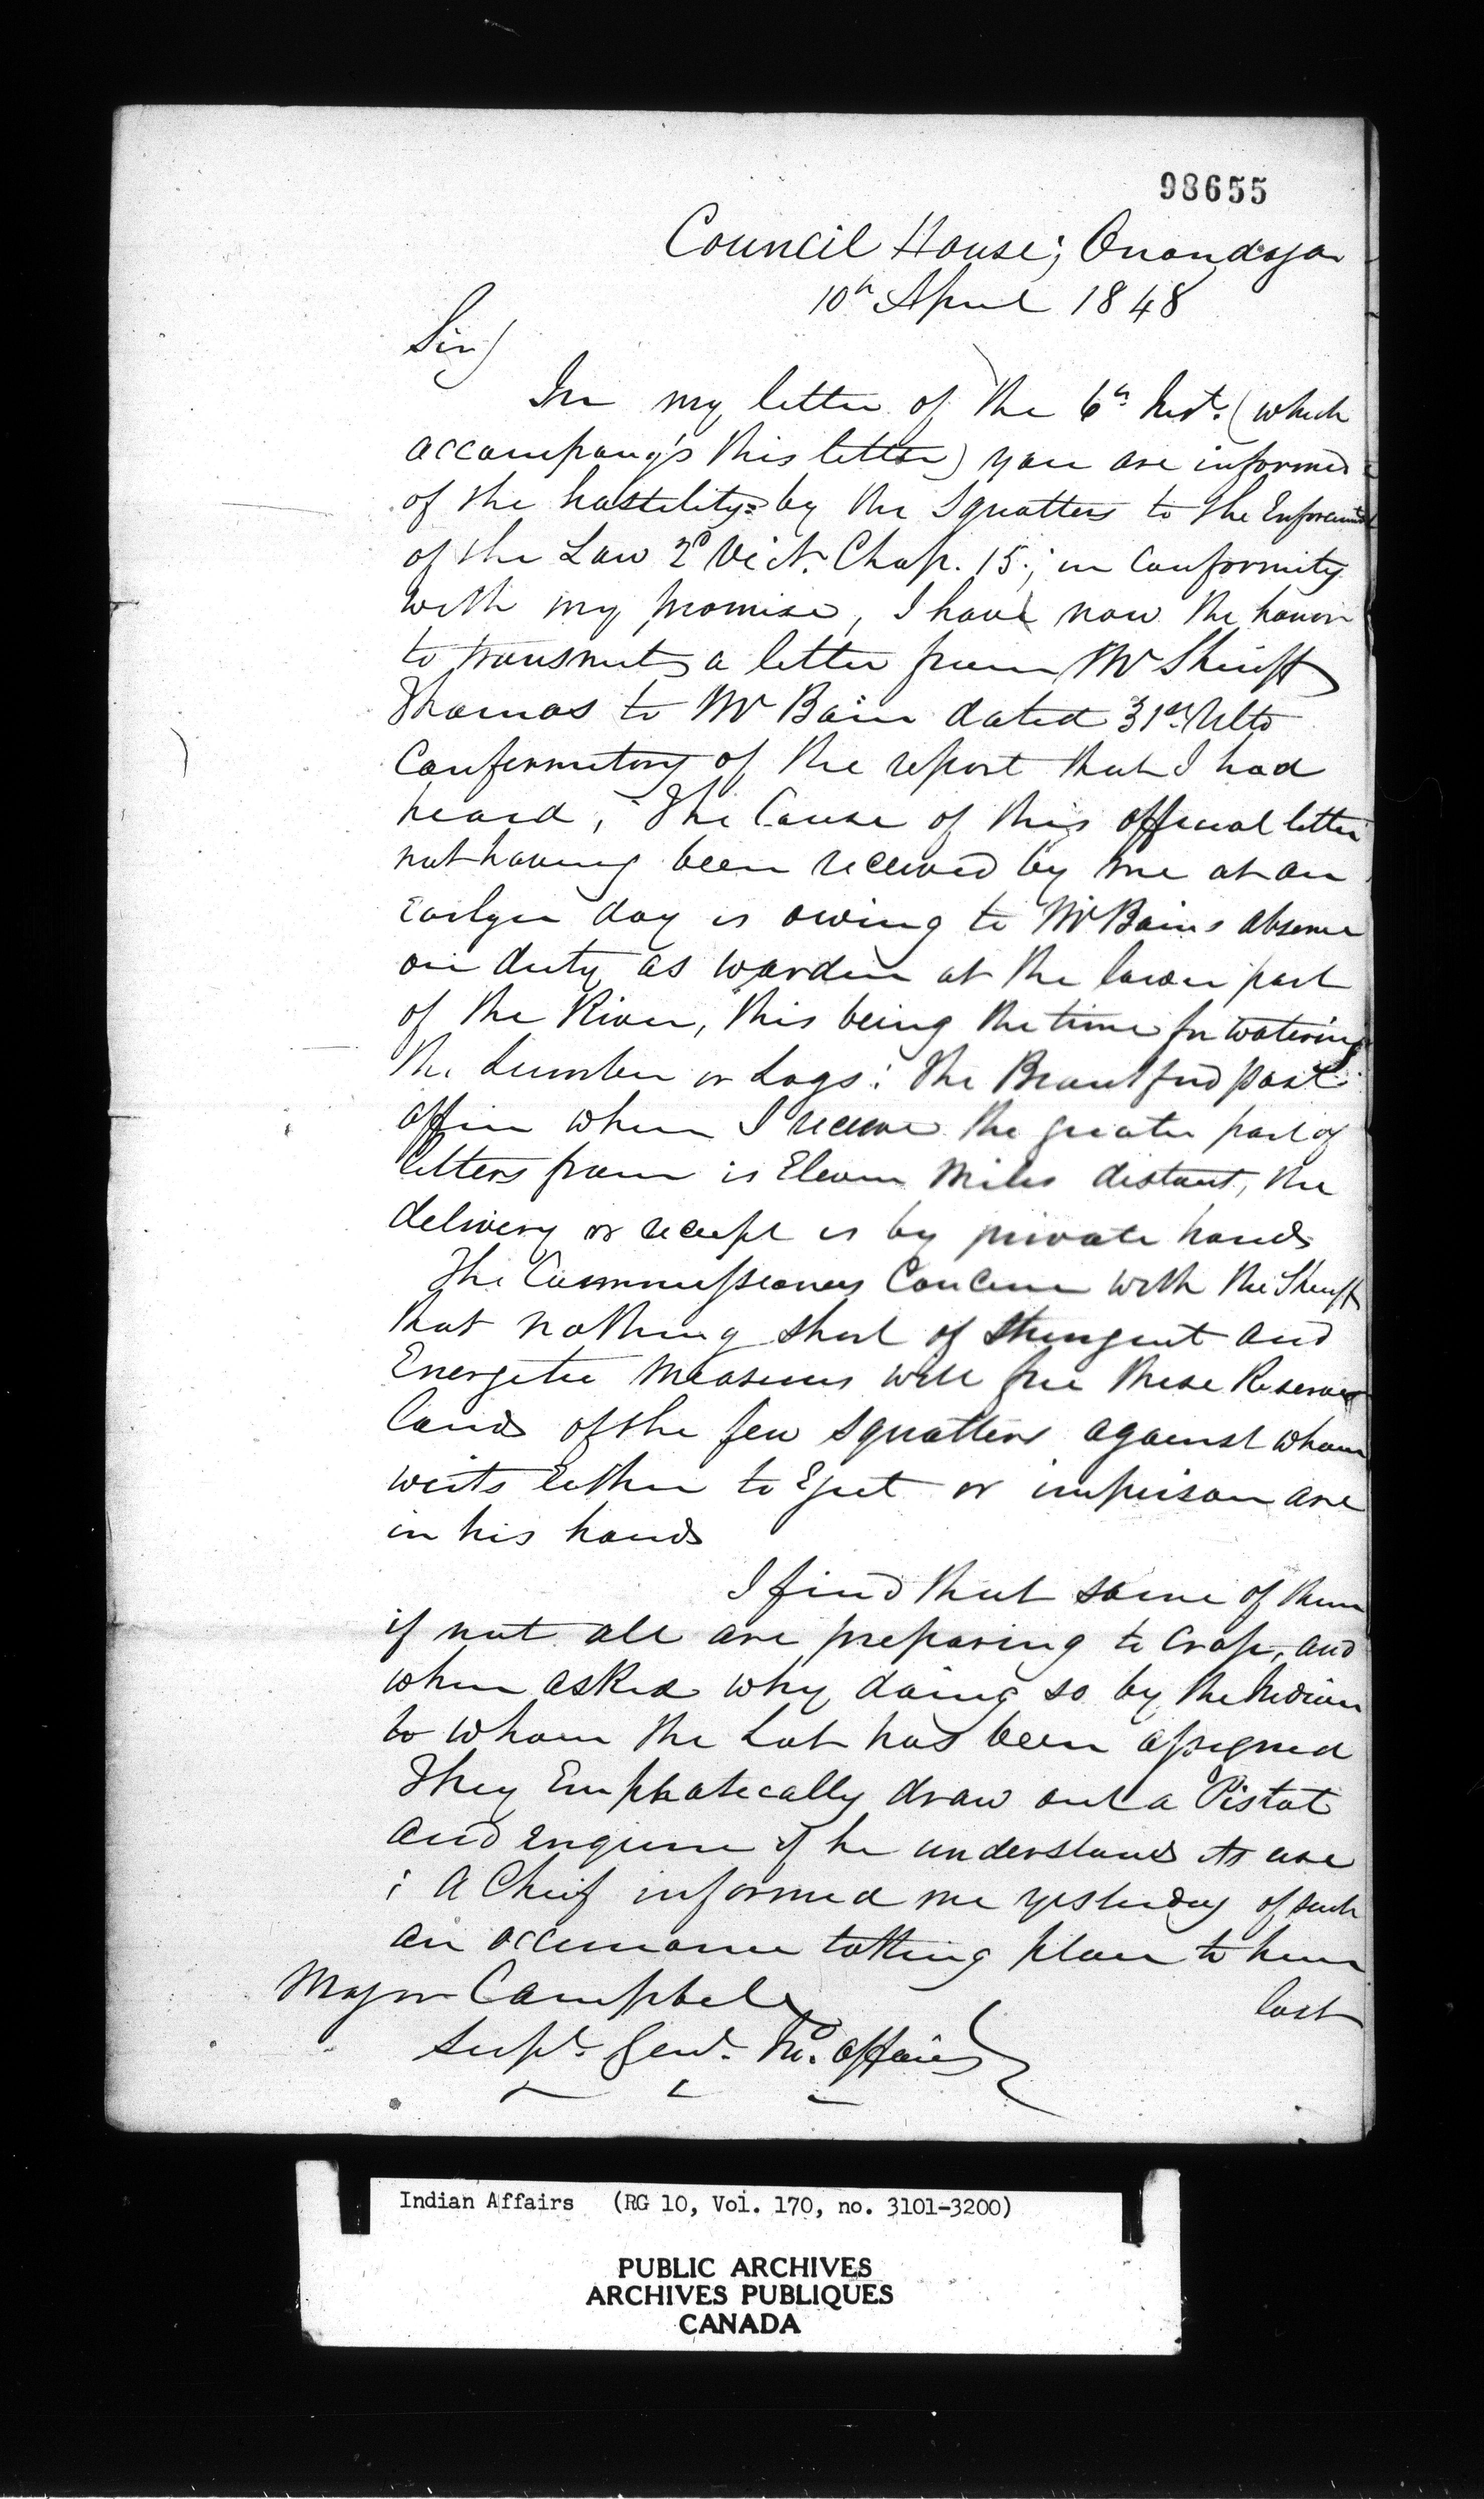 98655
Council House; Onondaga
10th April 1848
Sir)
In my letter of the 6th Inst. (which
accompany's this letter) you are informed
of the hostility by the Squatters to the Enforcement
of the Law 2d Vict. Chap. 15; in Conformity
with my promise, I have now the honor
to transmit a letter from Mr Sheriff
Thomas to Mr Bain dated 31st Ulto
Confirmatory of the report that I had
heard; The Cause of this official letter
not having been received by me at an
Earlyer day is owing to Mr Bains absence
on duty as warden at the lower part
of the River, this being the time for watering
the Lumber or Logs: the Brantford post
office where I receive the greater part of
letters from is Eleven Miles distant, the
delivery or receipt is by private hands
The Commissioners Concur with the Sheriff
that nothing short of Stringent and
Energetic Measures will free these Reserved
lands of the few Squatters against whom
writs Either to Eject or imprison are
in his hands
I find that some of them
if not all are preparing to Crop, and
when asked why doing so by the Indian
to whom the Lot has been assigned
They Emphatically draw out a Pistol
and Enquire if he understands its use
; A Chief informed me yesterday of such
an occurrance taking place to him
last
Major Campbell
Supt. Genl. In. Affairs
Indian Affairs (RG 10, Vol. 170, no. 3101-3200)
PUBLIC ARCHIVES
ARCHIVES PUBLIQUES
CANADA